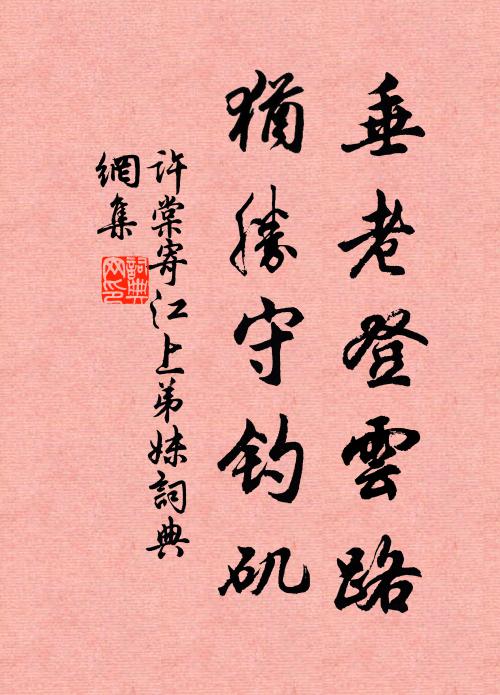 垂老登雲路
猶勝守釣矶
許棠寄江上弟妹詞典
網集
詞典網印